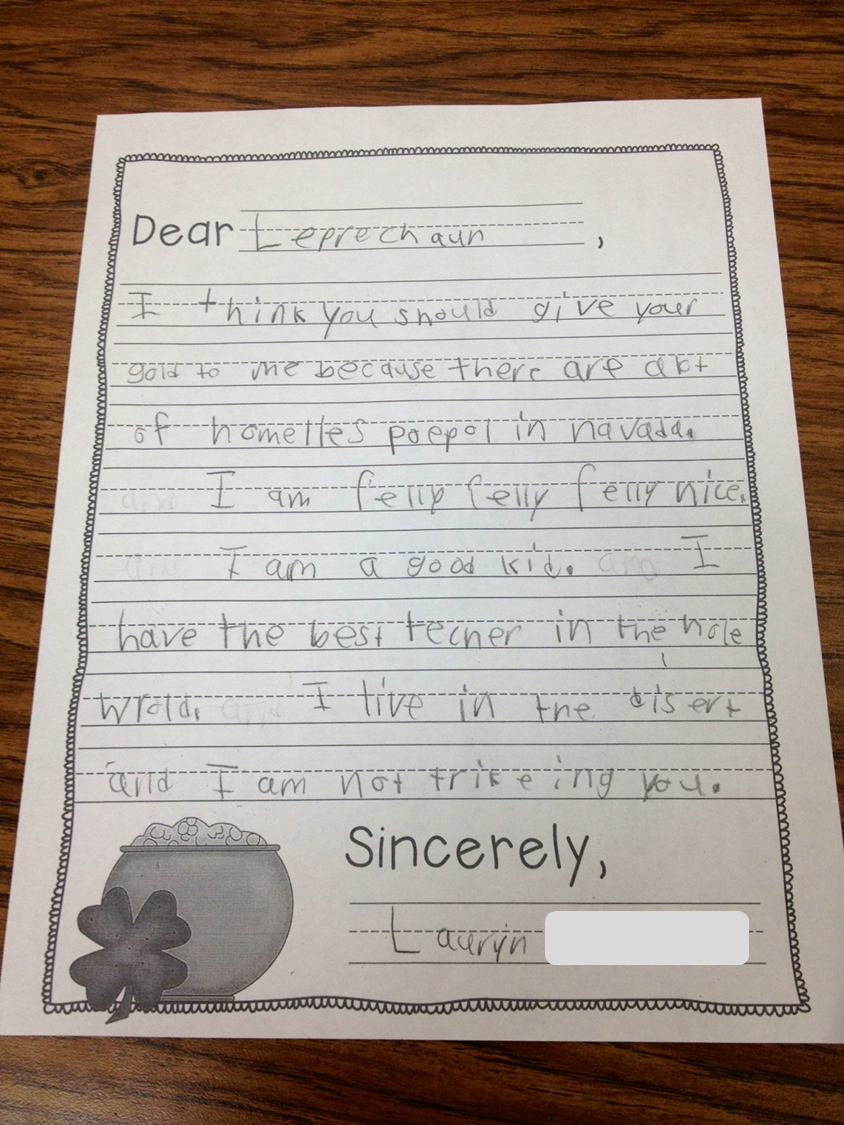 Dear Leprechaun,
I think you should give your
gold to me because there are alot
of homelles poepol in navada.
I am felly felly felly nice.
I am a good kid. I
have the best techer in the hole
wrold. I live in the disert
and I am not trikeing you.
Sincerely,
Lauryn